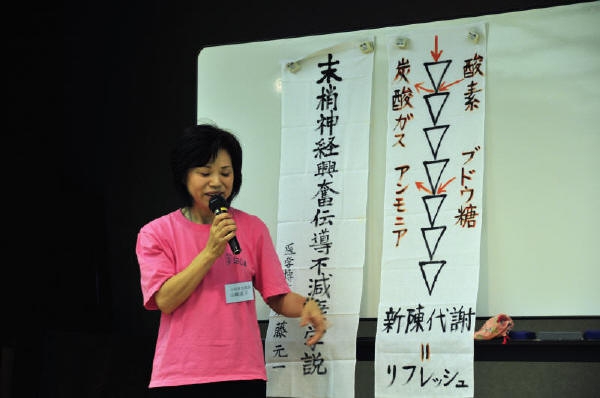 末梢神経興奮伝導不減衰学説
医学博
藤元一
酸素
炭酸ガス
ブドウ糖
アンモニア
新陳代謝
=
リフレッシュ